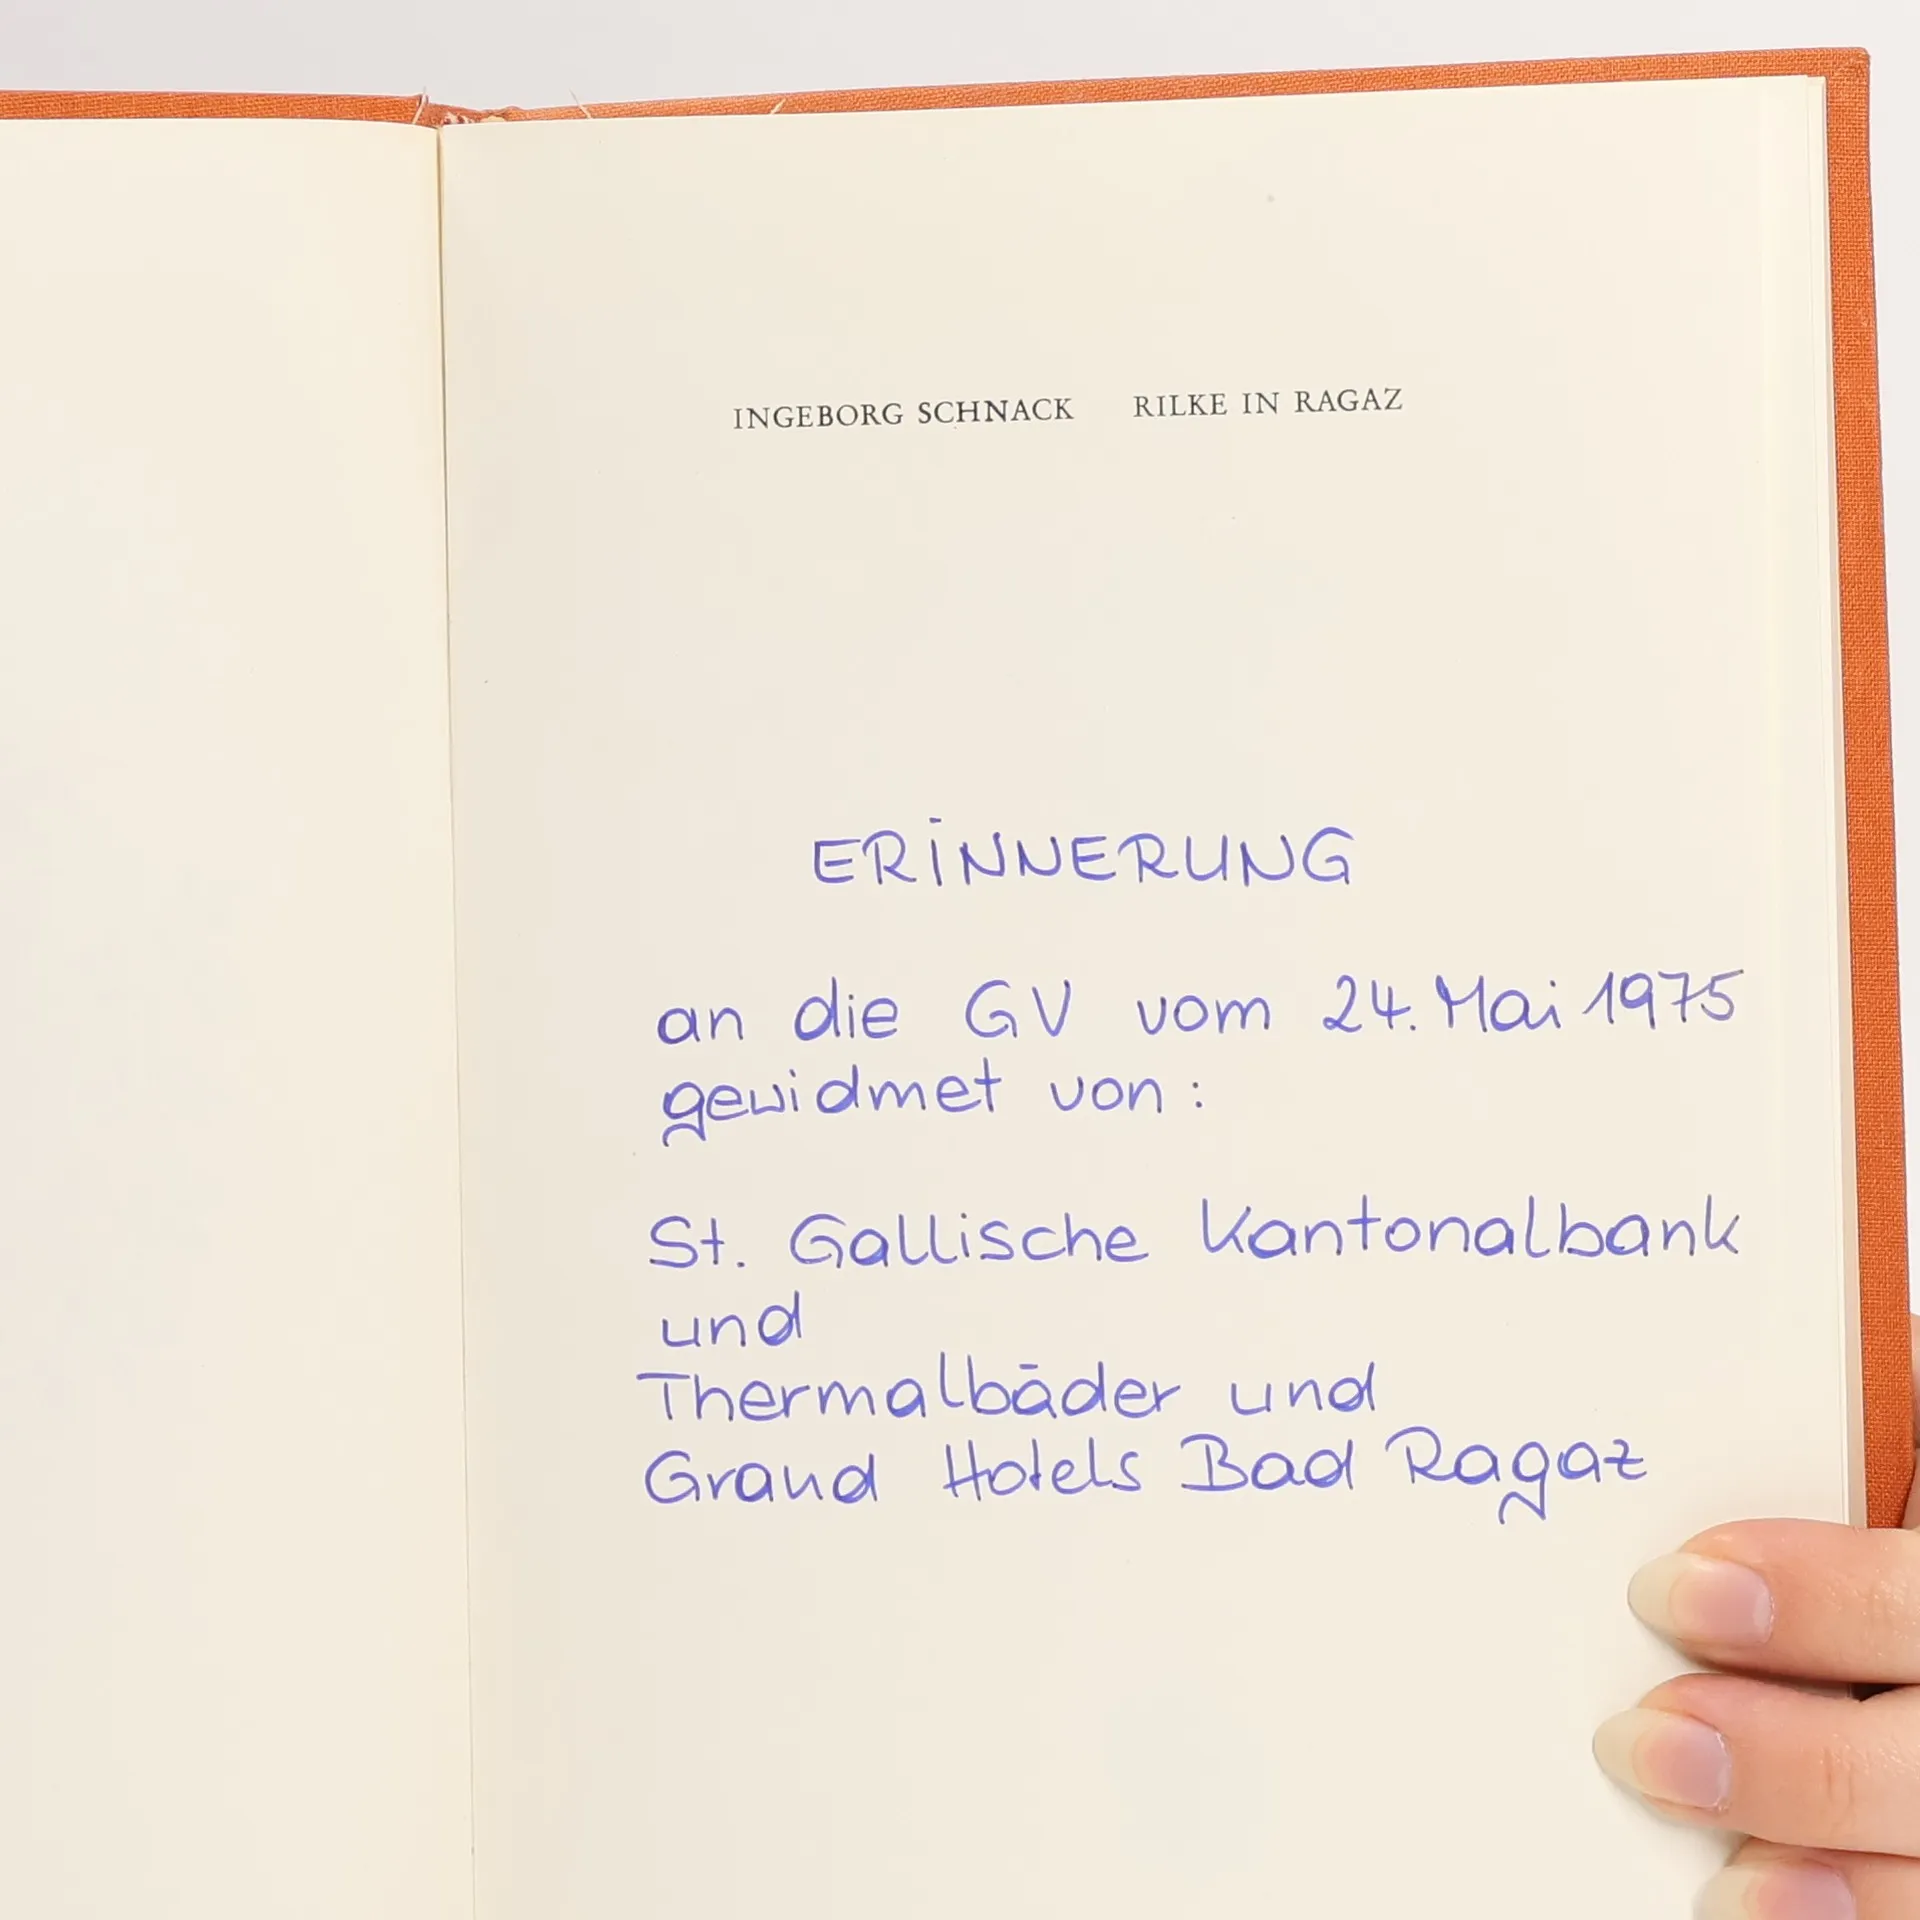 INGEBORG SCHNACK RILKE IN RAGAZ
ERINNERUNG
an die GV vom 24. Mai 1975
gewidmet von:
St. Gallische Kantonalbank
und
Thermalbäder und
Grand Hotels Bad Ragaz